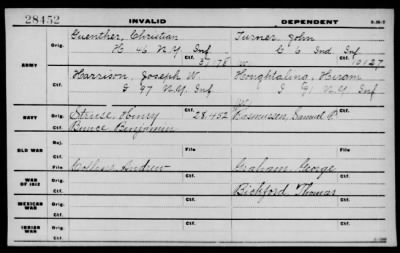 28452 INVALID DEPENDENT
Guenther, Christian Turner, John
Orig. H 46 N.Y. Inf Orig. G 6 Ind. Inf
ARMY Ctf. Ctf.
Harrison, Joseph W. Houghtaling, Hiram
Orig. I 97 N.Y. Inf. I 91 N.Y. Inf
Ctf.
NAVY Orig. Struse, Henry Ctf. 28,452 Rasmussen, Samuel P.
Ctf. Bunce Benjamin
OLD WAR Rej.
Ctf. File File
WAR OF 1812 Orig. Collins Andrew Graham George
Ctf. Bickford Thomas
MEXICAN WAR Orig.
Ctf.
INDIAN WAR Orig.
Ctf. Ctf.